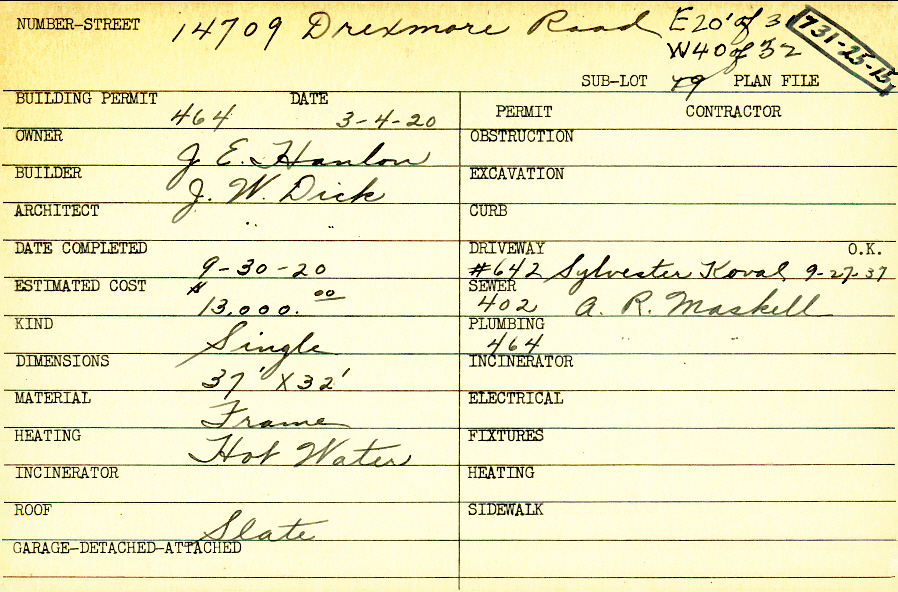 NUMBER-STREET 14709 Drexmore Road E20' of 31
W40 of 32
731-25-15
SUB-LOT 49 PLAN FILE
BUILDING PERMIT DATE
464 3-4-20
OWNER
J E. Hanlon
BUILDER
J. W. Dick
ARCHITECT
" "
DATE COMPLETED
9-30-20
ESTIMATED COST
$13,000.00
KIND
Single
DIMENSIONS
37' X 32'
MATERIAL
Frame
HEATING
Hot Water
INCINERATOR
ROOF
Slate
GARAGE-DETACHED-ATTACHED
PERMIT CONTRACTOR
OBSTRUCTION
EXCAVATION
CURB
DRIVEWAY O.K.
#642 Sylvester Koval 9-27-37
SEWER
402 A. R. Maskell
PLUMBING
464 " "
INCINERATOR
ELECTRICAL
FIXTURES
HEATING
SIDEWALK